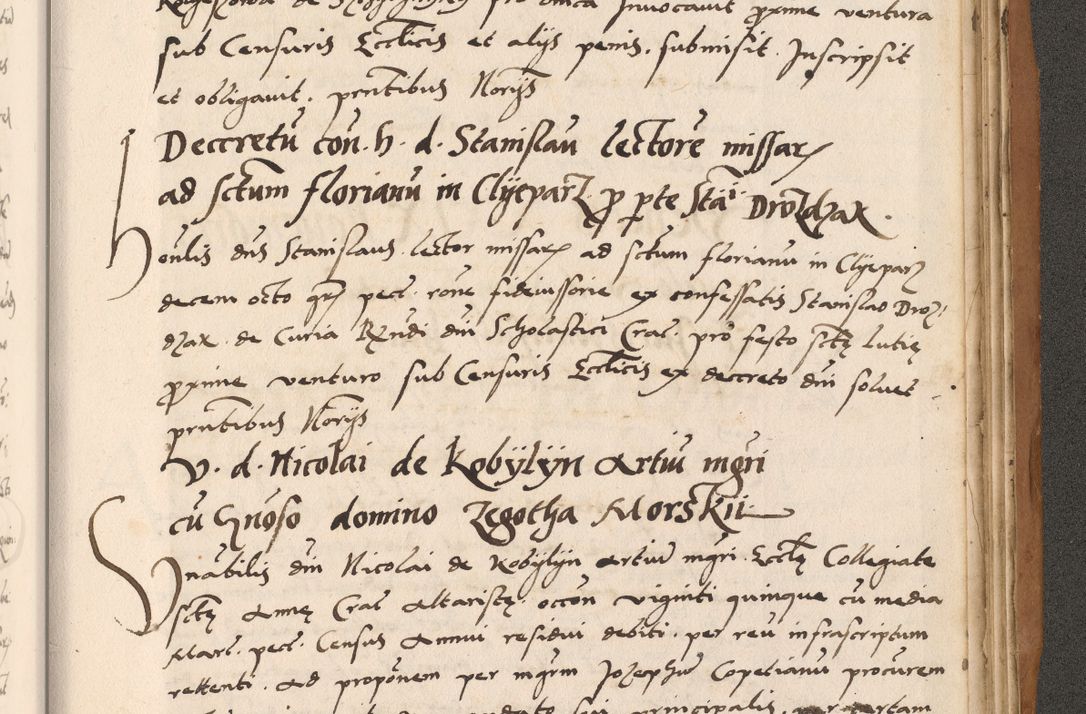 sub Censuris Ecclicis et alijs penis. submisit. Inscripsit
et obligavit. prntibus Norijs
Decretū con. h. d. Stanislaū lectore missar
ad sctum florianū in Clijeparz p pte Stai Drozdzax.
Honlis dns Stanislaus lector missar ad sctum florianū in Clijeparz
decem octo grs pect. rone fideiussorie ex confessatis Stanislao Droz
dzax. de Curia Rzndi dni Scholastici Crac. pro festo scte Lutię
proxime venturo sub Censuris Ecclicis ex decreto dni solvet
prntibus Norijs
V. d. Nicolai de Kobijlijn Artiū mgri
cū Gnoso domino Zegotha Morskii
Vnabilis dni Nicolai de Kobijlijn Artiū mgri. Ecclę Collegiate
sctę Annę Crac Altaristę. occon viginti quinque cū media
Marc. pect. Census Annui residui debiti. per reū infrascriptum
rettenti. Ad proponem per mgrm Jozephū Copetianū procurem